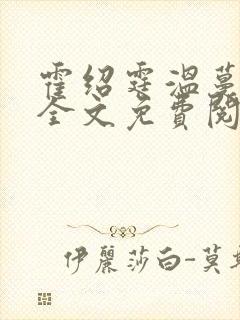 霍绍霆温蔓
全文免費閱
伊麗莎白-莫